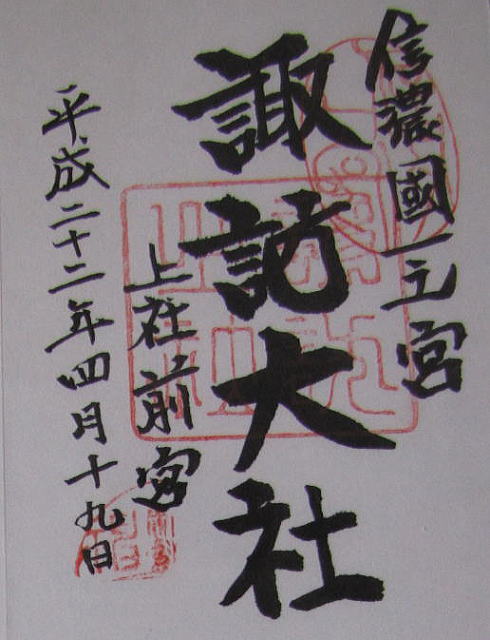 信濃國一之宮
諏訪大社
上社前宮
平成二十二年四月十九日